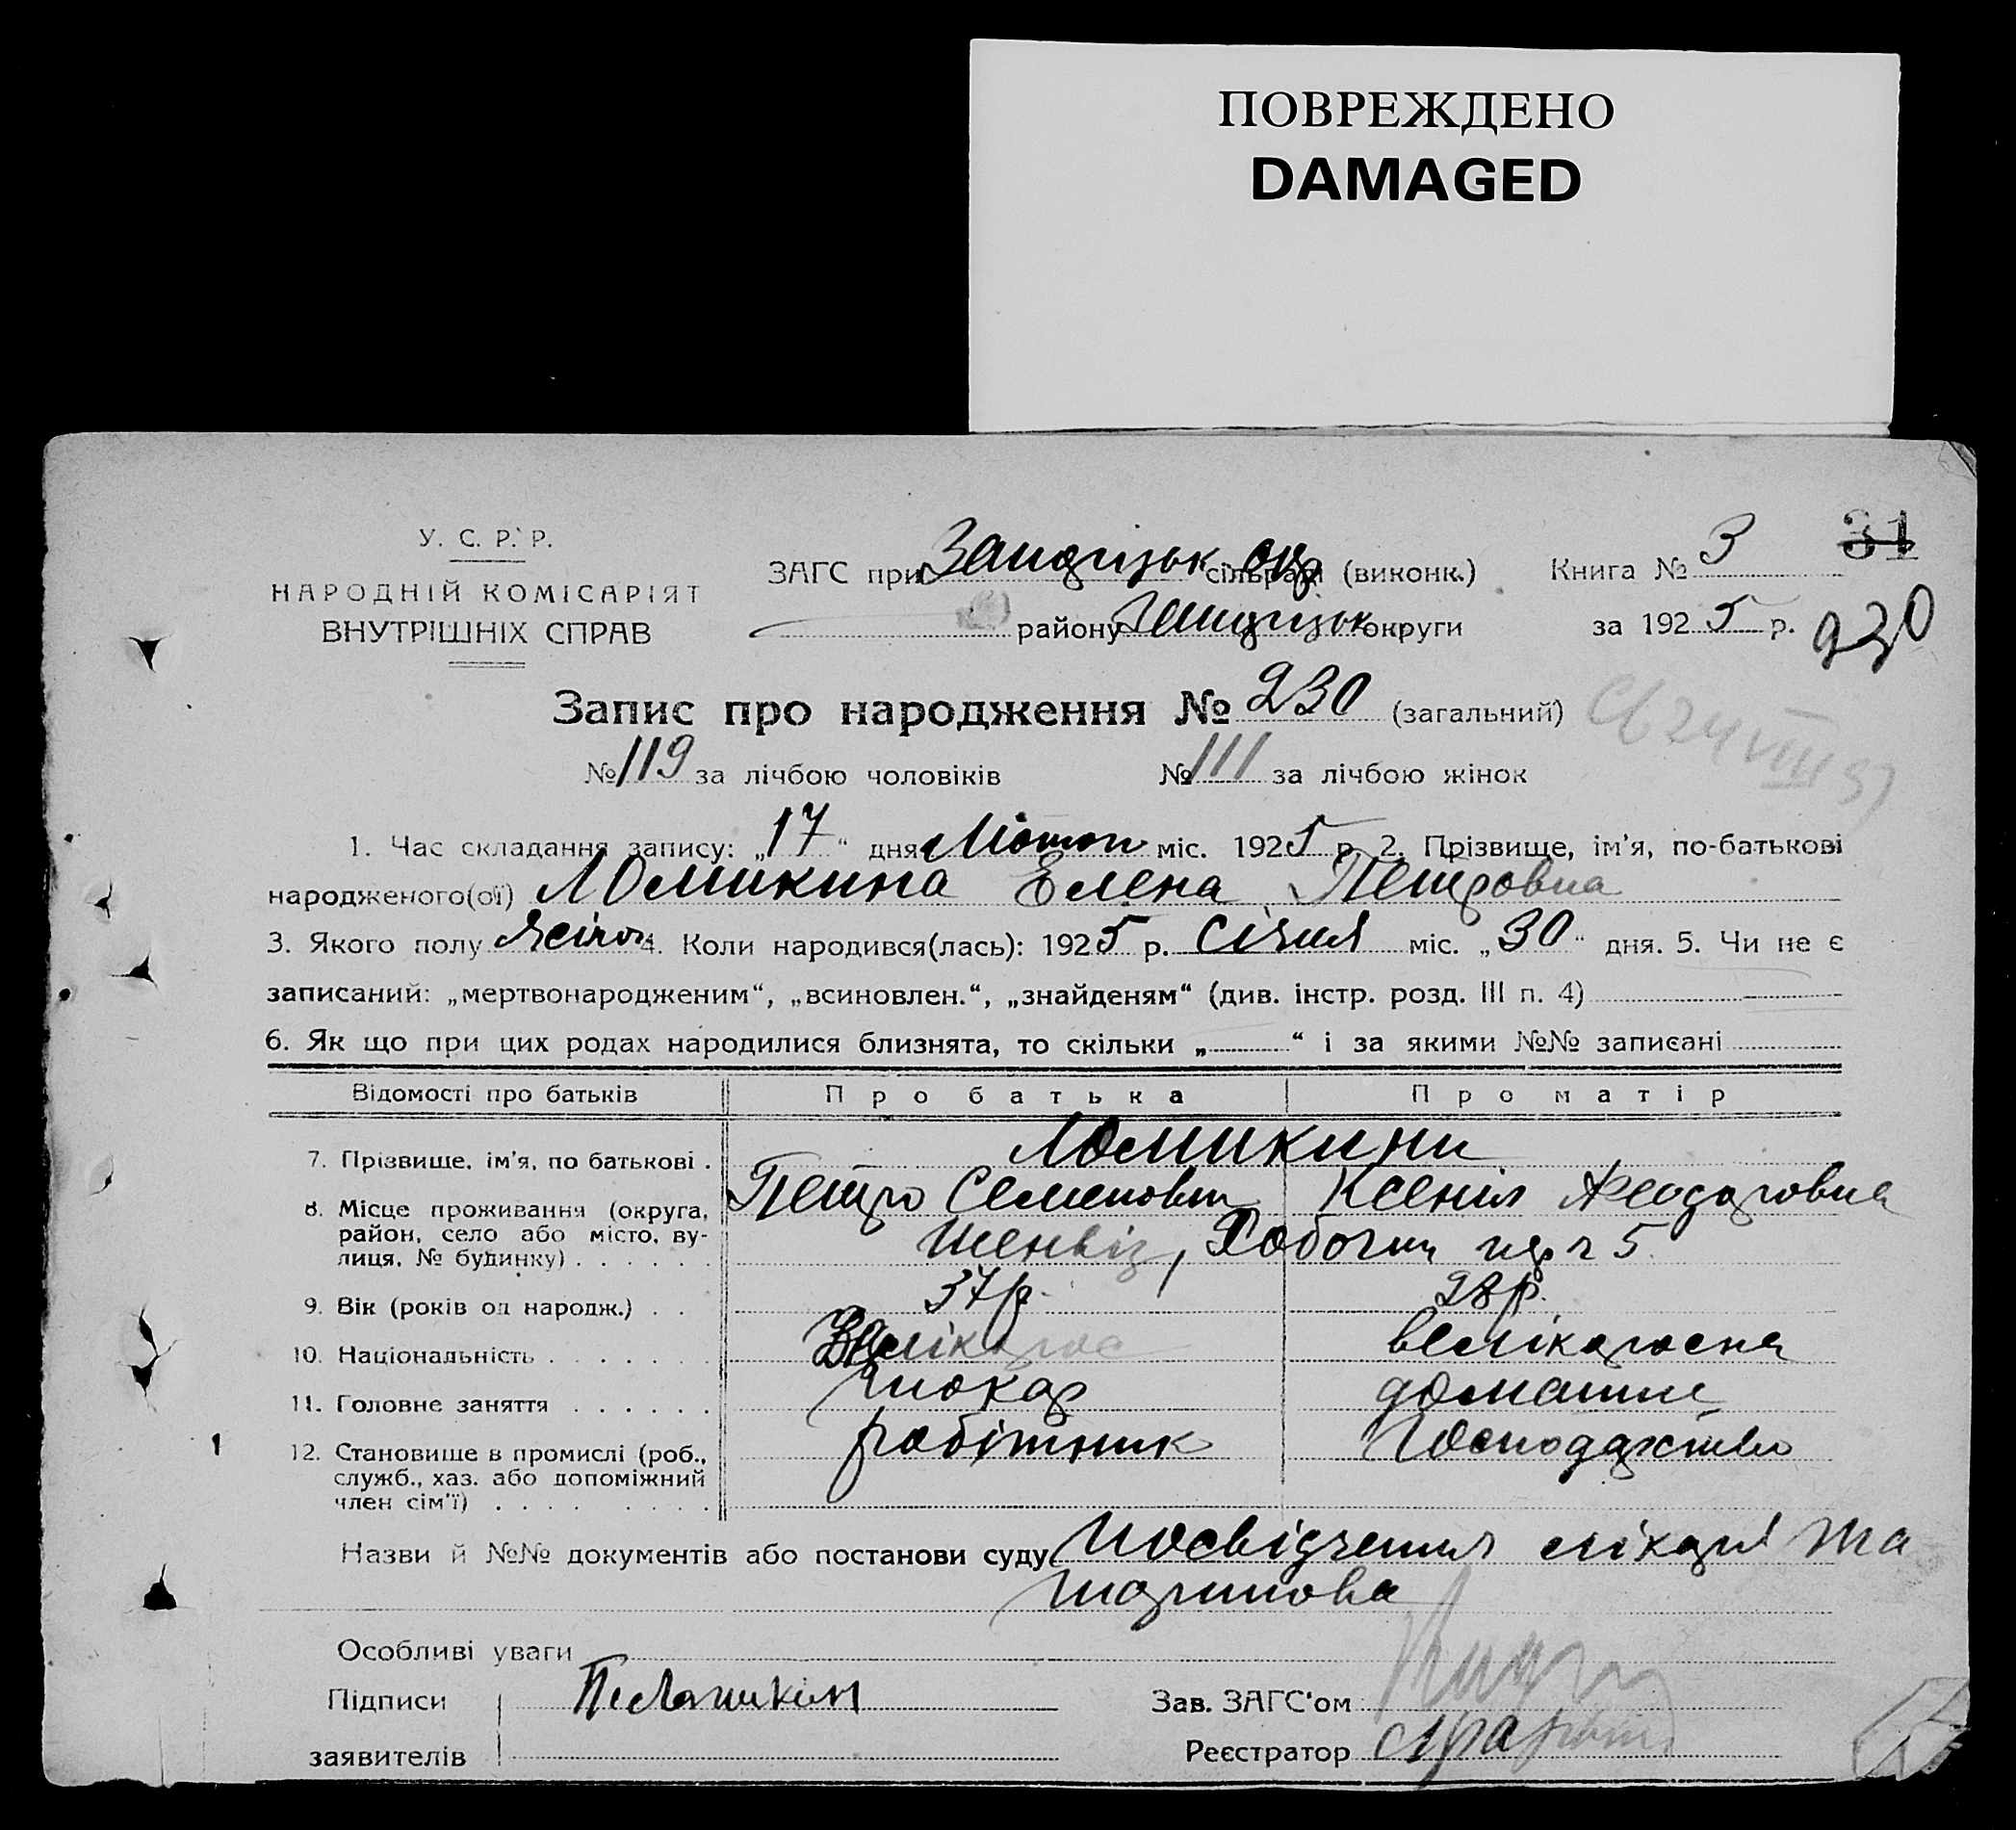 ПОВРЕЖДЕНО
DAMAGED
У. С. Р. Р.
НАРОДНІЙ КОМІСАРІЯТ
ВНУТРІШНІХ СПРАВ
ЗАГС при сільраді (виконк.)
району округи
Книга № 3
31
за 1925 р.
230
Запис про народження № 230 (загальний)
№ 119 за лічбою чоловіків № 111 за лічбою жінок
1. Час складання запису: „17“ дня Лютого міс. 1925 р. 2. Прізвище, ім'я, по-батькові
народженого(ої) Ломикина Елена Петровна
3. Якого полу жіноч 4. Коли народився(лась): 1925 р. Січня міс. „30“ дня. 5. Чи не є
записаний: „мертвонародженим“, „всиновлен.“, „знайденям“ (див. інстр. розд. III п. 4)
6. Як що при цих родах народилися близнята, то скільки „ “ і за якими №№ записані
Відомості про батьків Про батька Про матір
7. Прізвище, ім'я, по батькові . Ломикини
Петро Семенович Ксенія Феодоровна
8. Місце проживання (округа,
район, село або місто, ву-
лиця, № будинку) . . . . . .
5
9. Вік (років од народж.) . . 37 р. 28 р.
10. Національність . . . . . . . Велікорос велікоросня
11. Головне заняття . . . . . . токар домашнє
12. Становище в промислі (роб., робітник господарство
служб., хаз. або допоміжний
член сім'ї) . . . . . . . .
1
Назви й №№ документів або постанови суду посвідчення лікаря та
Особливі уваги
Підписи Зав. ЗАГС'ом
заявителів Реєстратор